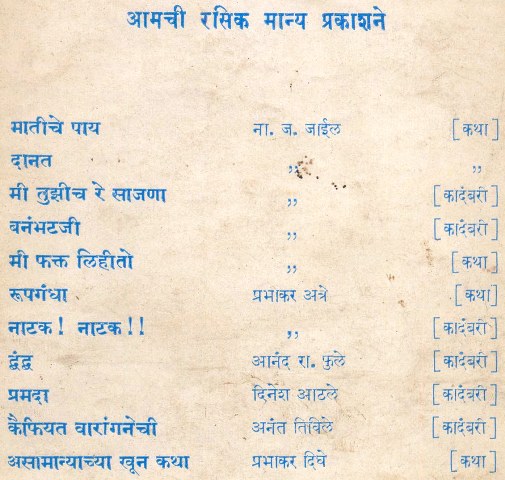 आमची रसिक मान्य प्रकाशने
मातीचे पाय ना. ज. जाईल [कथा]
दानत ,, ,,
मी तुझीच रे साजणा ,, [कादंबरी]
वनंभटजी ,, [कादंबरी]
मी फक्त लिहीतो ,, [कथा]
रूपगंधा प्रभाकर अत्रे [कथा]
नाटक! नाटक!! ,, [कादंबरी]
द्वंद्व आनंद रा. फुले [कादंबरी]
प्रमदा दिनेश आठले [कादंबरी]
कैफियत वारांगनेची अनंत तिविले [कादंबरी]
असामान्याच्या खून कथा प्रभाकर दिघे [कथा]